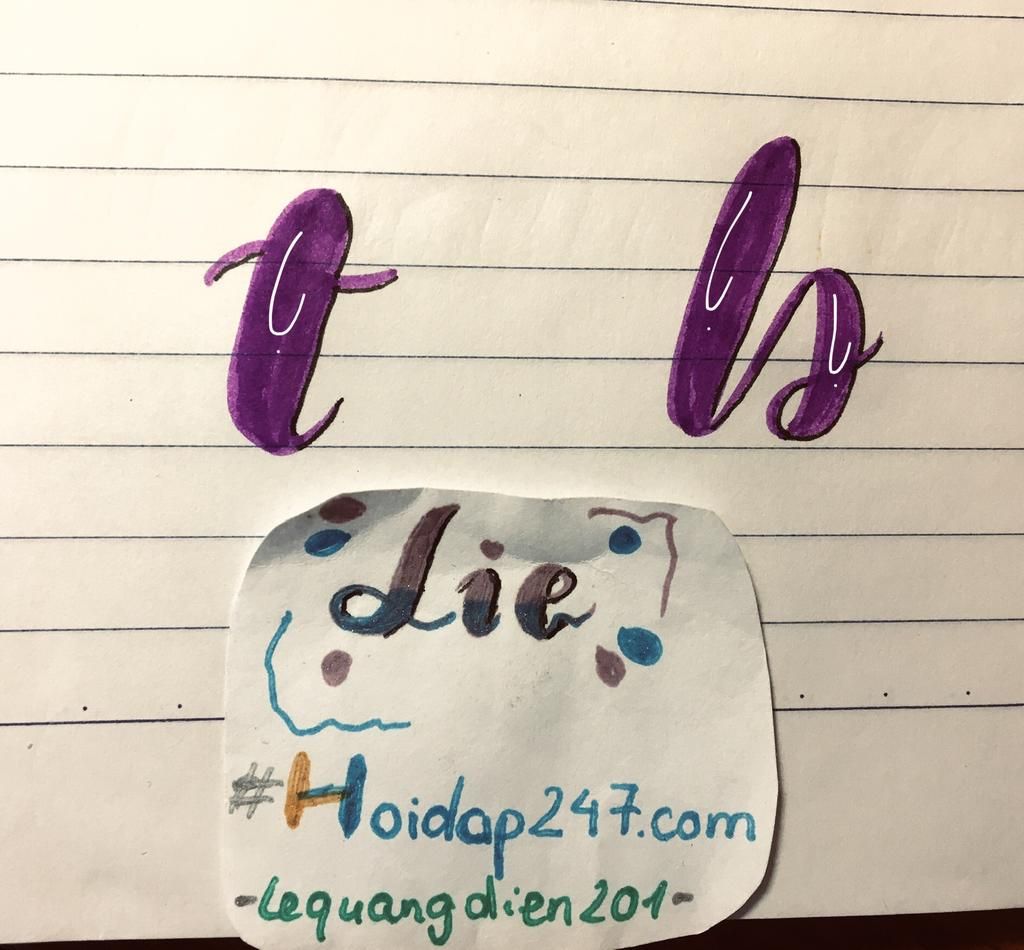 t b
die
#Hoidap247.com
-lequangdien201-